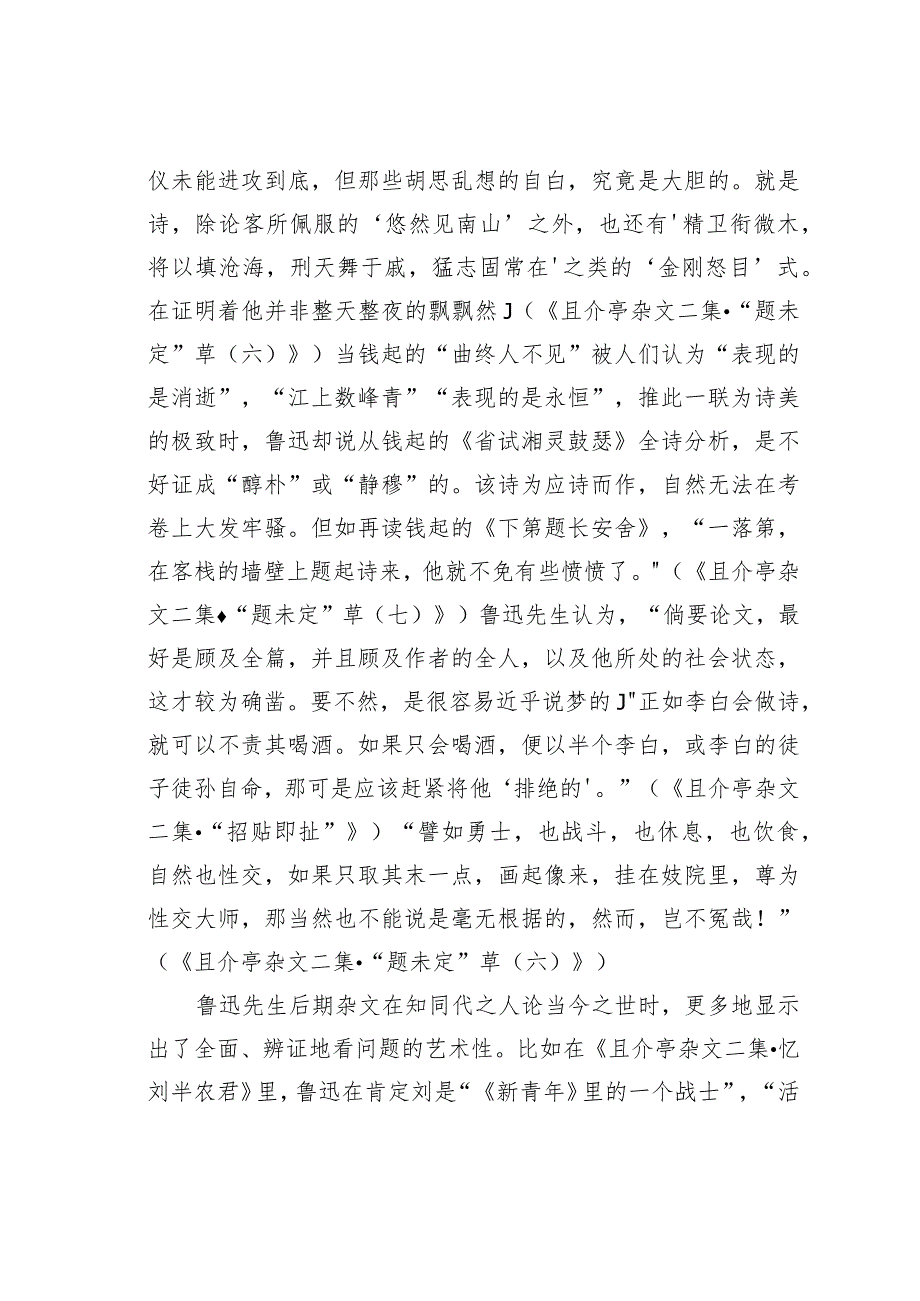 仪未能进攻到底，但那些胡思乱想的自白，究竟是大胆的。就是
诗，除论客所佩服的‘悠然见南山’之外，也还有'精卫衔微木，
将以填沧海，刑天舞于戚，猛志固常在'之类的‘金刚怒目’式。
在证明着他并非整天整夜的飘飘然J（《且介亭杂文二集•“题未
定”草（六）》）当钱起的“曲终人不见”被人们认为“表现的
是消逝”，“江上数峰青”“表现的是永恒”，推此一联为诗美
的极致时，鲁迅却说从钱起的《省试湘灵鼓瑟》全诗分析，是不
好证成“醇朴”或“静穆”的。该诗为应诗而作，自然无法在考
卷上大发牢骚。但如再读钱起的《下第题长安舍》，“一落第，
在客栈的墙壁上题起诗来，他就不免有些愤愤了。"（《且介亭杂
文二集♦“题未定”草（七）》）鲁迅先生认为，“倘要论文，最
好是顾及全篇，并且顾及作者的全人，以及他所处的社会状态，
这才较为确凿。要不然，是很容易近乎说梦的J"正如李白会做诗，
就可以不责其喝酒。如果只会喝酒，便以半个李白，或李白的徒
子徒孙自命，那可是应该赶紧将他‘排绝的'。”（《且介亭杂文
二集•“招贴即扯”》）“譬如勇士，也战斗，也休息，也饮食，
自然也性交，如果只取其末一点，画起像来，挂在妓院里，尊为
性交大师，那当然也不能说是毫无根据的，然而，岂不冤哉！”
（《且介亭杂文二集•“题未定”草（六）》）
鲁迅先生后期杂文在知同代之人论当今之世时，更多地显示
出了全面、辨证地看问题的艺术性。比如在《且介亭杂文二集•忆
刘半农君》里，鲁迅在肯定刘是“《新青年》里的一个战士”，“活